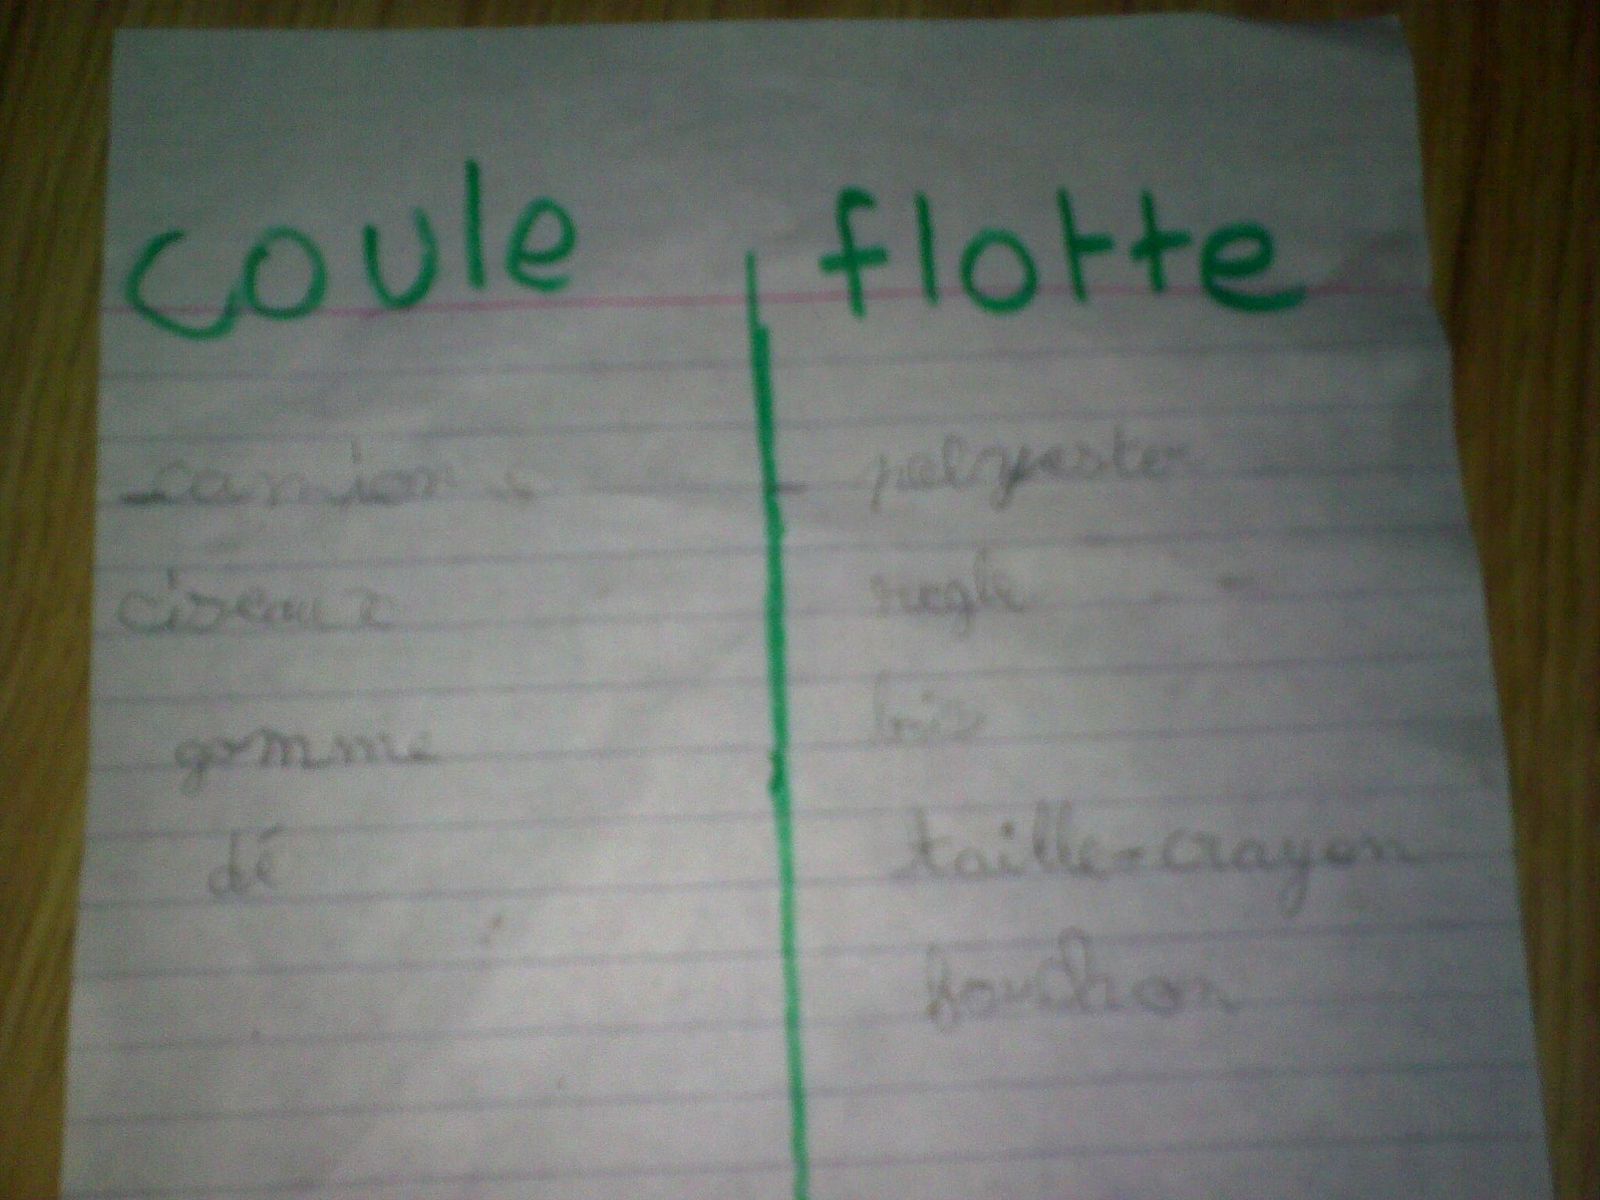 coule
flotte
camion
polyester
ciseaux
regle
gomme
bois
dé
taille-crayon
bouchon